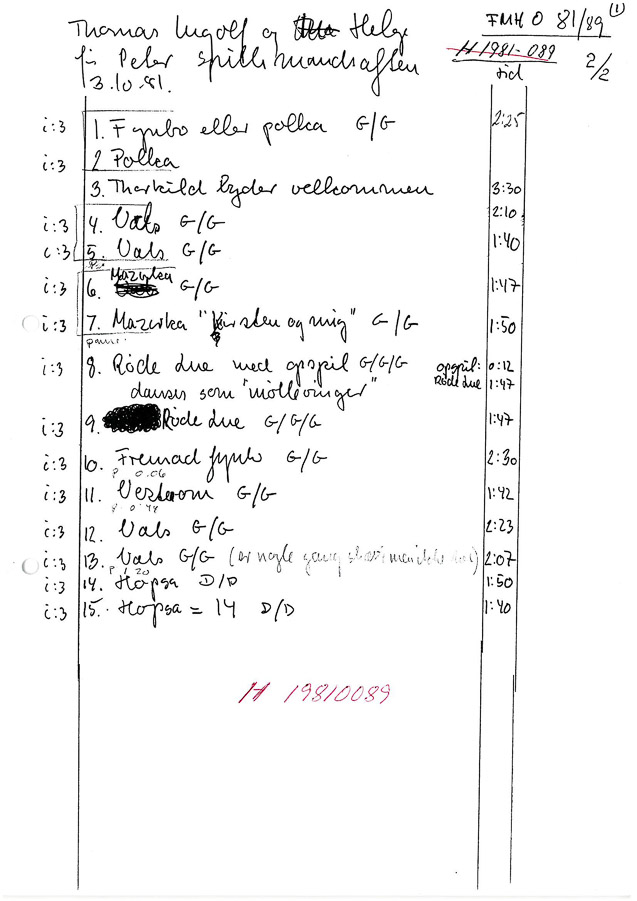 Thomas Ingolf og Helge
FMH O 81/89 (1)
Peter Spillemandsaften
H 1981-089
2/2
13.10.81.
tid
i:3 1. Fynbo eller polka G/G 2:25
i:3 2 Polka
3. Thorkild byder velkommen 3:30
i:3 4. Vals G/G 2:10
i:3 5. Vals G/G 1:40
i:3 6. Mazurka G/G 1:47
i:3 7. Mazurka "Kirsten og mig" G/G 1:50
pause
i:3 8. Røde due med opspil G/G/G opspil: 0:12
danses som "mølleoinger" Røde due 1:47
i:3 9. Røde due G/G/G 1:47
i:3 10. Fremad fynbo G/G 2:30
P 0.06
i:3 11. Vestvom G/G 1:42
P 0:48
i:3 12. Vals G/G 2:23
i:3 13. Vals G/G (er nogle gang 2:07
P 1.20
i:3 14. Hopsa D/D 1:50
i:3 15. Hopsa = 14 D/D 1:40
H 19810089